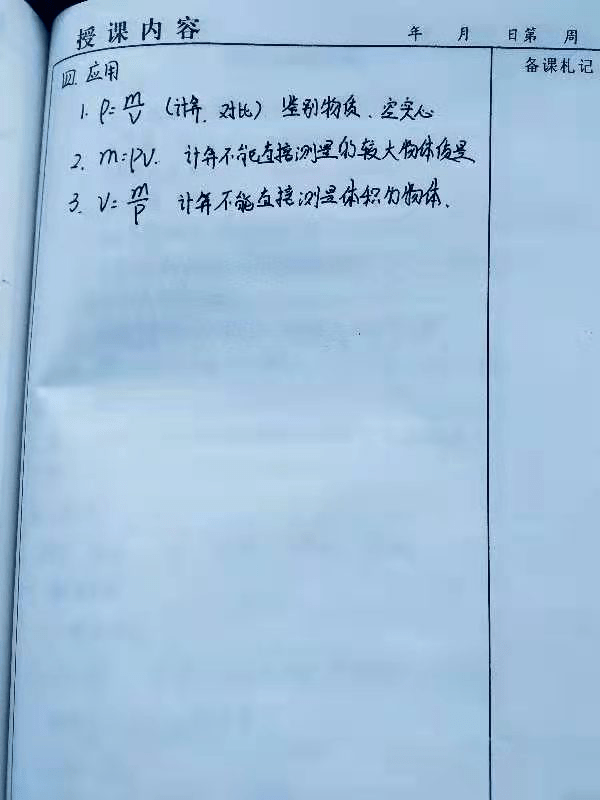 授课内容
年 月 日第 周
备课札记
四. 应用
1. ρ=m/V (计算. 对比) 鉴别物质、空实心
2. m=ρV. 计算不能直接测量的较大物体质量
3. V=m/ρ 计算不能直接测量体积的物体.